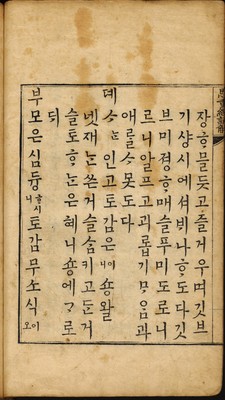 쟝ᄒᆞ믈듯고즐거우며깃브
기샹시에셔ᄇᆡ나ᄒᆞ도다깃
브미졍ᄒᆞ매슬푸미도로니
르니알프고괴롭기ᄆᆞ음과
애를ᄉᆞ못도다
뎨ᄉᆞᄂᆞᆫ인고토감은이니숑왈
넷재ᄂᆞᆫ쓴거슬숨키고둔거
슬토ᄒᆞᄂᆞᆫ은혜니숑에ᄀᆞ로
되
부모은심듕ᄒᆞ시니토감무쇼식이오